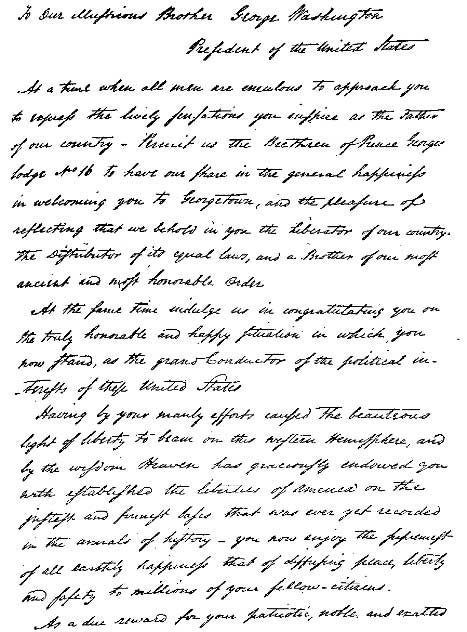 To Our Illustrious Brother George Washington
President of the United States
At a time when all men are emulous to approach you
to express the lively sensations you inspire as the Father
of our country - Permit us the Brethren of Prince Georges
lodge No 16 to have our share in the general happiness
in welcoming you to Georgetown, and the pleasure of
reflecting that we behold in you the liberator of our country
the Distributor of its equal laws, and a Brother of our most
ancient and most honorable Order
At the same time indulge us in congratulating you on
the truly honorable and happy situation in which you
now stand, as the grand Conductor of the political in-
-terests of these United States
Having by your manly efforts caused the beauteous
light of liberty to beam on this western Hemisphere, and
by the wisdom Heaven has graciously endowed you
with established the liberties of America on the
justest and firmest basis that was ever yet recorded
in the annals of history - you now enjoy the supremest
of all earthly happiness that of diffusing peace, liberty
and safety to millions of your fellow-citizens.
As a due reward for your patriotic, noble and exalted